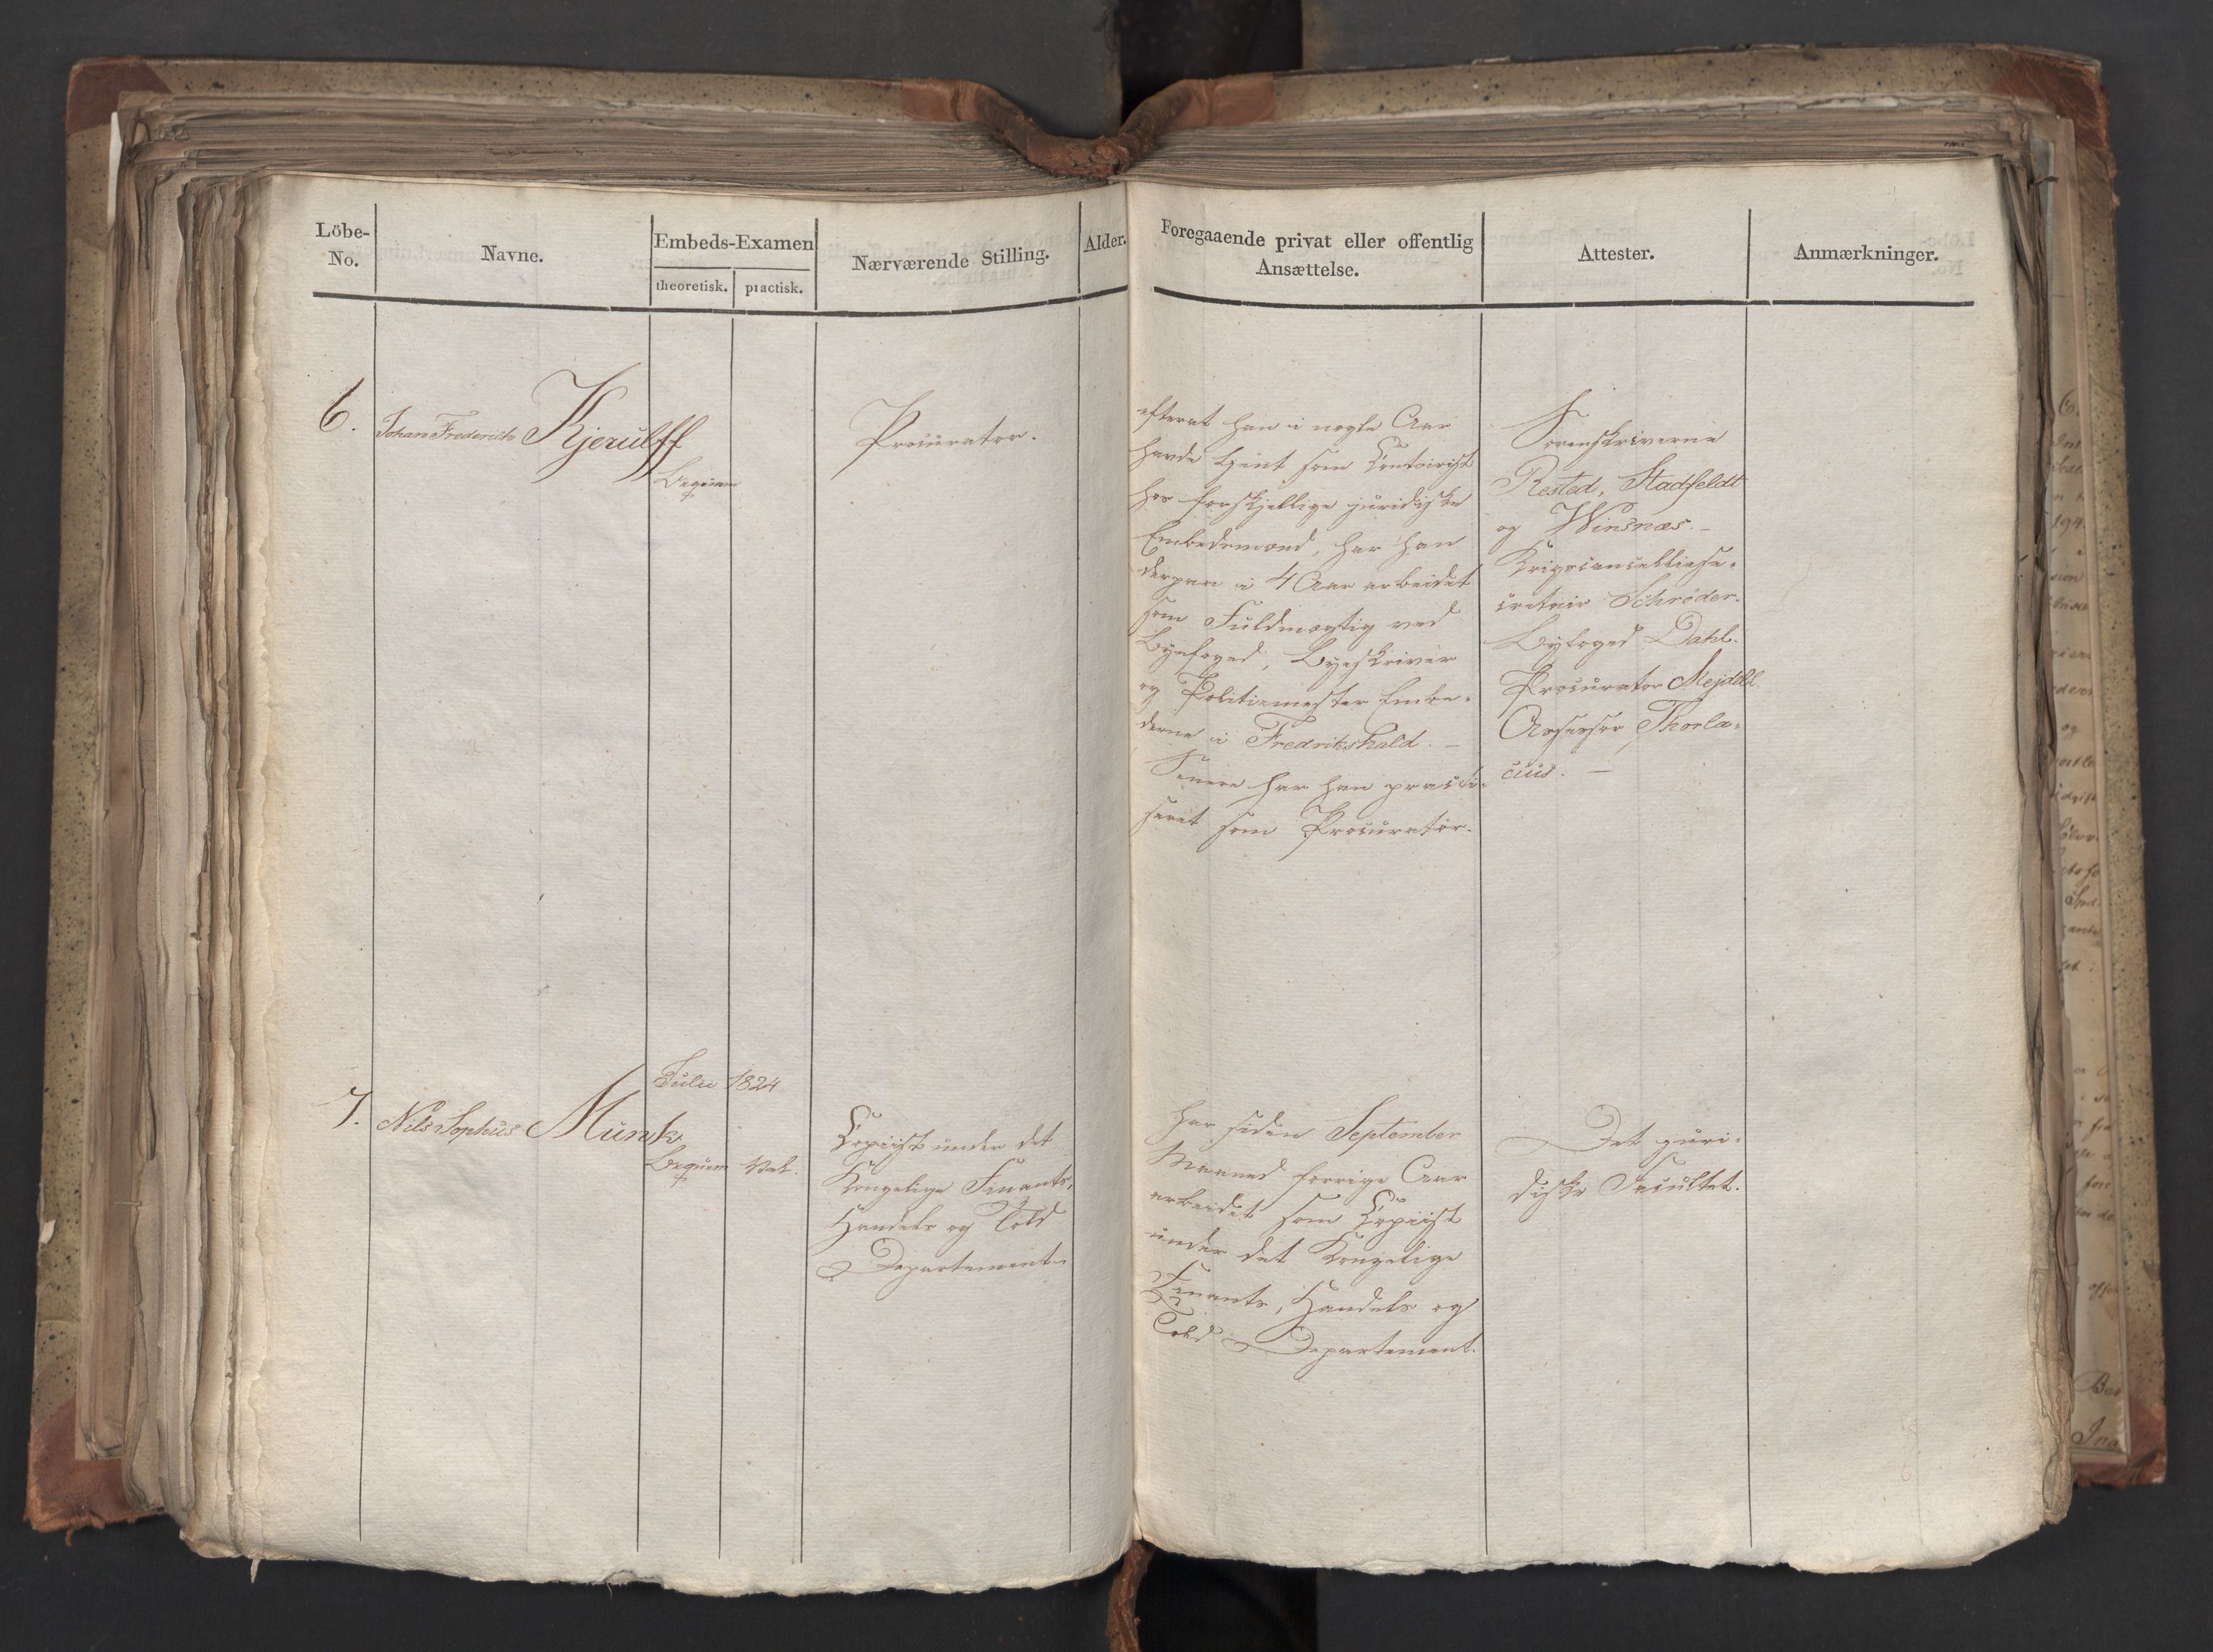 Löbe-
No.
Navne.
Embeds-Examen
theoretisk.
practisk.
Nærværende Stilling.
Alder.
Foregaaende privat eller offentlig
Ansættelse.
Attester.
Anmærkninger.
6.
Johan Frederick Kjerulff
Beqvem
Procurator.
efterat han i nogle Aar
havde tjent som Contoirist
hos forskjellige juridiske
Embedsmænd, har han
derpaa i 4 Aar arbeidet
som Fuldmægtig ved
Byefoged, Byeskriver
og Politiemester Embe-
derne i Fredrikshald. –
Senere har han practi-
seret som Procurator.
Sorenskriverne
Rested, Stadfeldt
og Winsnæs. –
Krigscancelliese-
cretair Schrøder.
Byfoged Dahl.
Procurator Mejdell.
Assessor Thorla-
cius. –
7.
Nils Sophus Munk
Julii 1824
Beqvem
Vel.
Copiist under det
Kongelige Finants,
Handels og Told
Departement.
har siden September
Maaned forrige Aar
arbeidet som Copiist
under det Kongelige
Finants, Handels og
Told Departement.
Det juri-
diske Facultet.